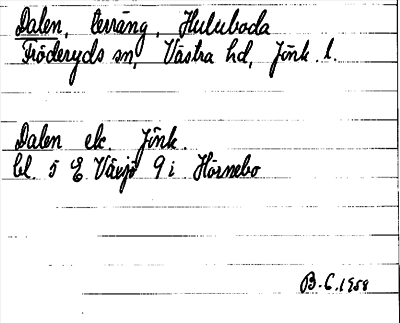 Dalen, terräng, Huluboda
Fröderyds sn, Västra hd, Jönk. l.
Dalen ek. Jönk.
bl. 5 E Växjö 9 i Hörnebo
B.C. 1958